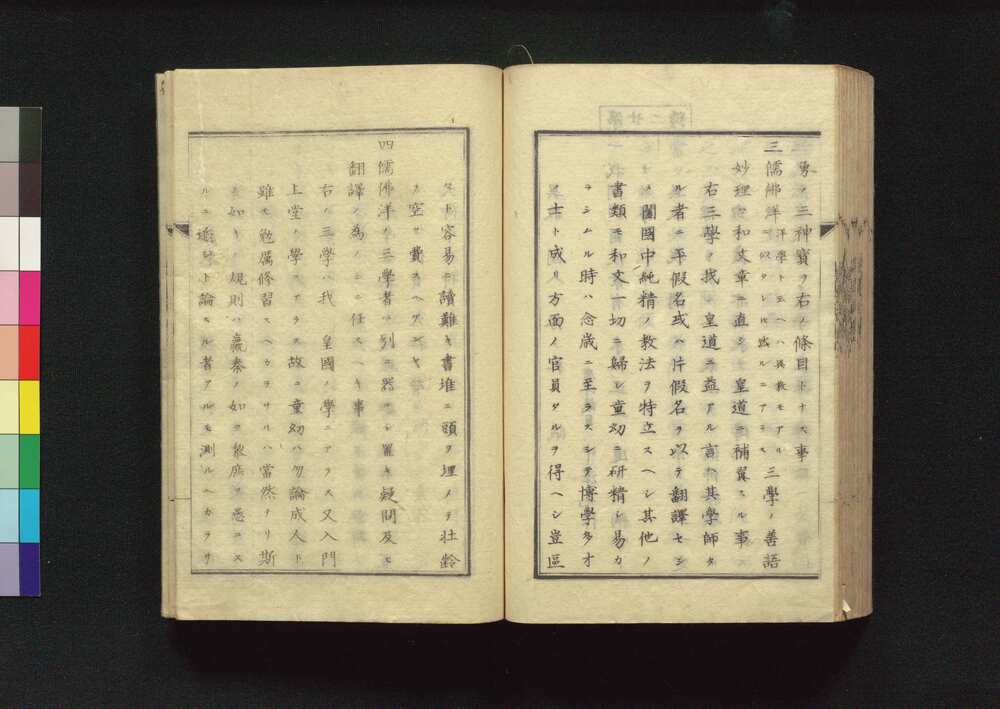 勇ノ三神寶ヲ右ノ條目トナス事
三儒佛洋洋學ト云ヘハ異教モアルニ似タレトモ然ルニアラス三學ノ善語
妙理ヲ和文章ニ直シ皇道ニ補翼スル事
右三學ノ我皇道ニ益アル言ハ其學師タ
ル者ニ平假名或ハ片假名ヲ以テ翻譯セシ
メ闔國中純精ノ教法ヲ特立スヘシ其他ノ
書類モ和文一切ニ歸シ童幼ニ研精シ易カ
ラシムル時ハ念歳ニ至ラスシテ博學多才
ノ士ト成リ方面ノ官員タルヲ得ヘシ豈區
々ト容易ニ讀難キ書堆ニ頭ヲ埋メテ壮齢
ヲ空ク費スヘケンヤ
四儒佛洋ノ三學者ハ別ニ器トシ置キ疑問及ヒ
翻譯ノ為メノミニ任スヘキ事
右ノ三學ハ我 皇國ノ學ニアラス又入門
上堂ノ學ニアラス故ニ童幼ハ勿論成人ト
雖モ勉厲修習スヘカラサルハ當然タリ斯
ノ如キノ規則ハ嬴秦ノ如ク敎庶ヲ愚ニス
ルニ近シト論スル者アルモ測ルヘカラサ